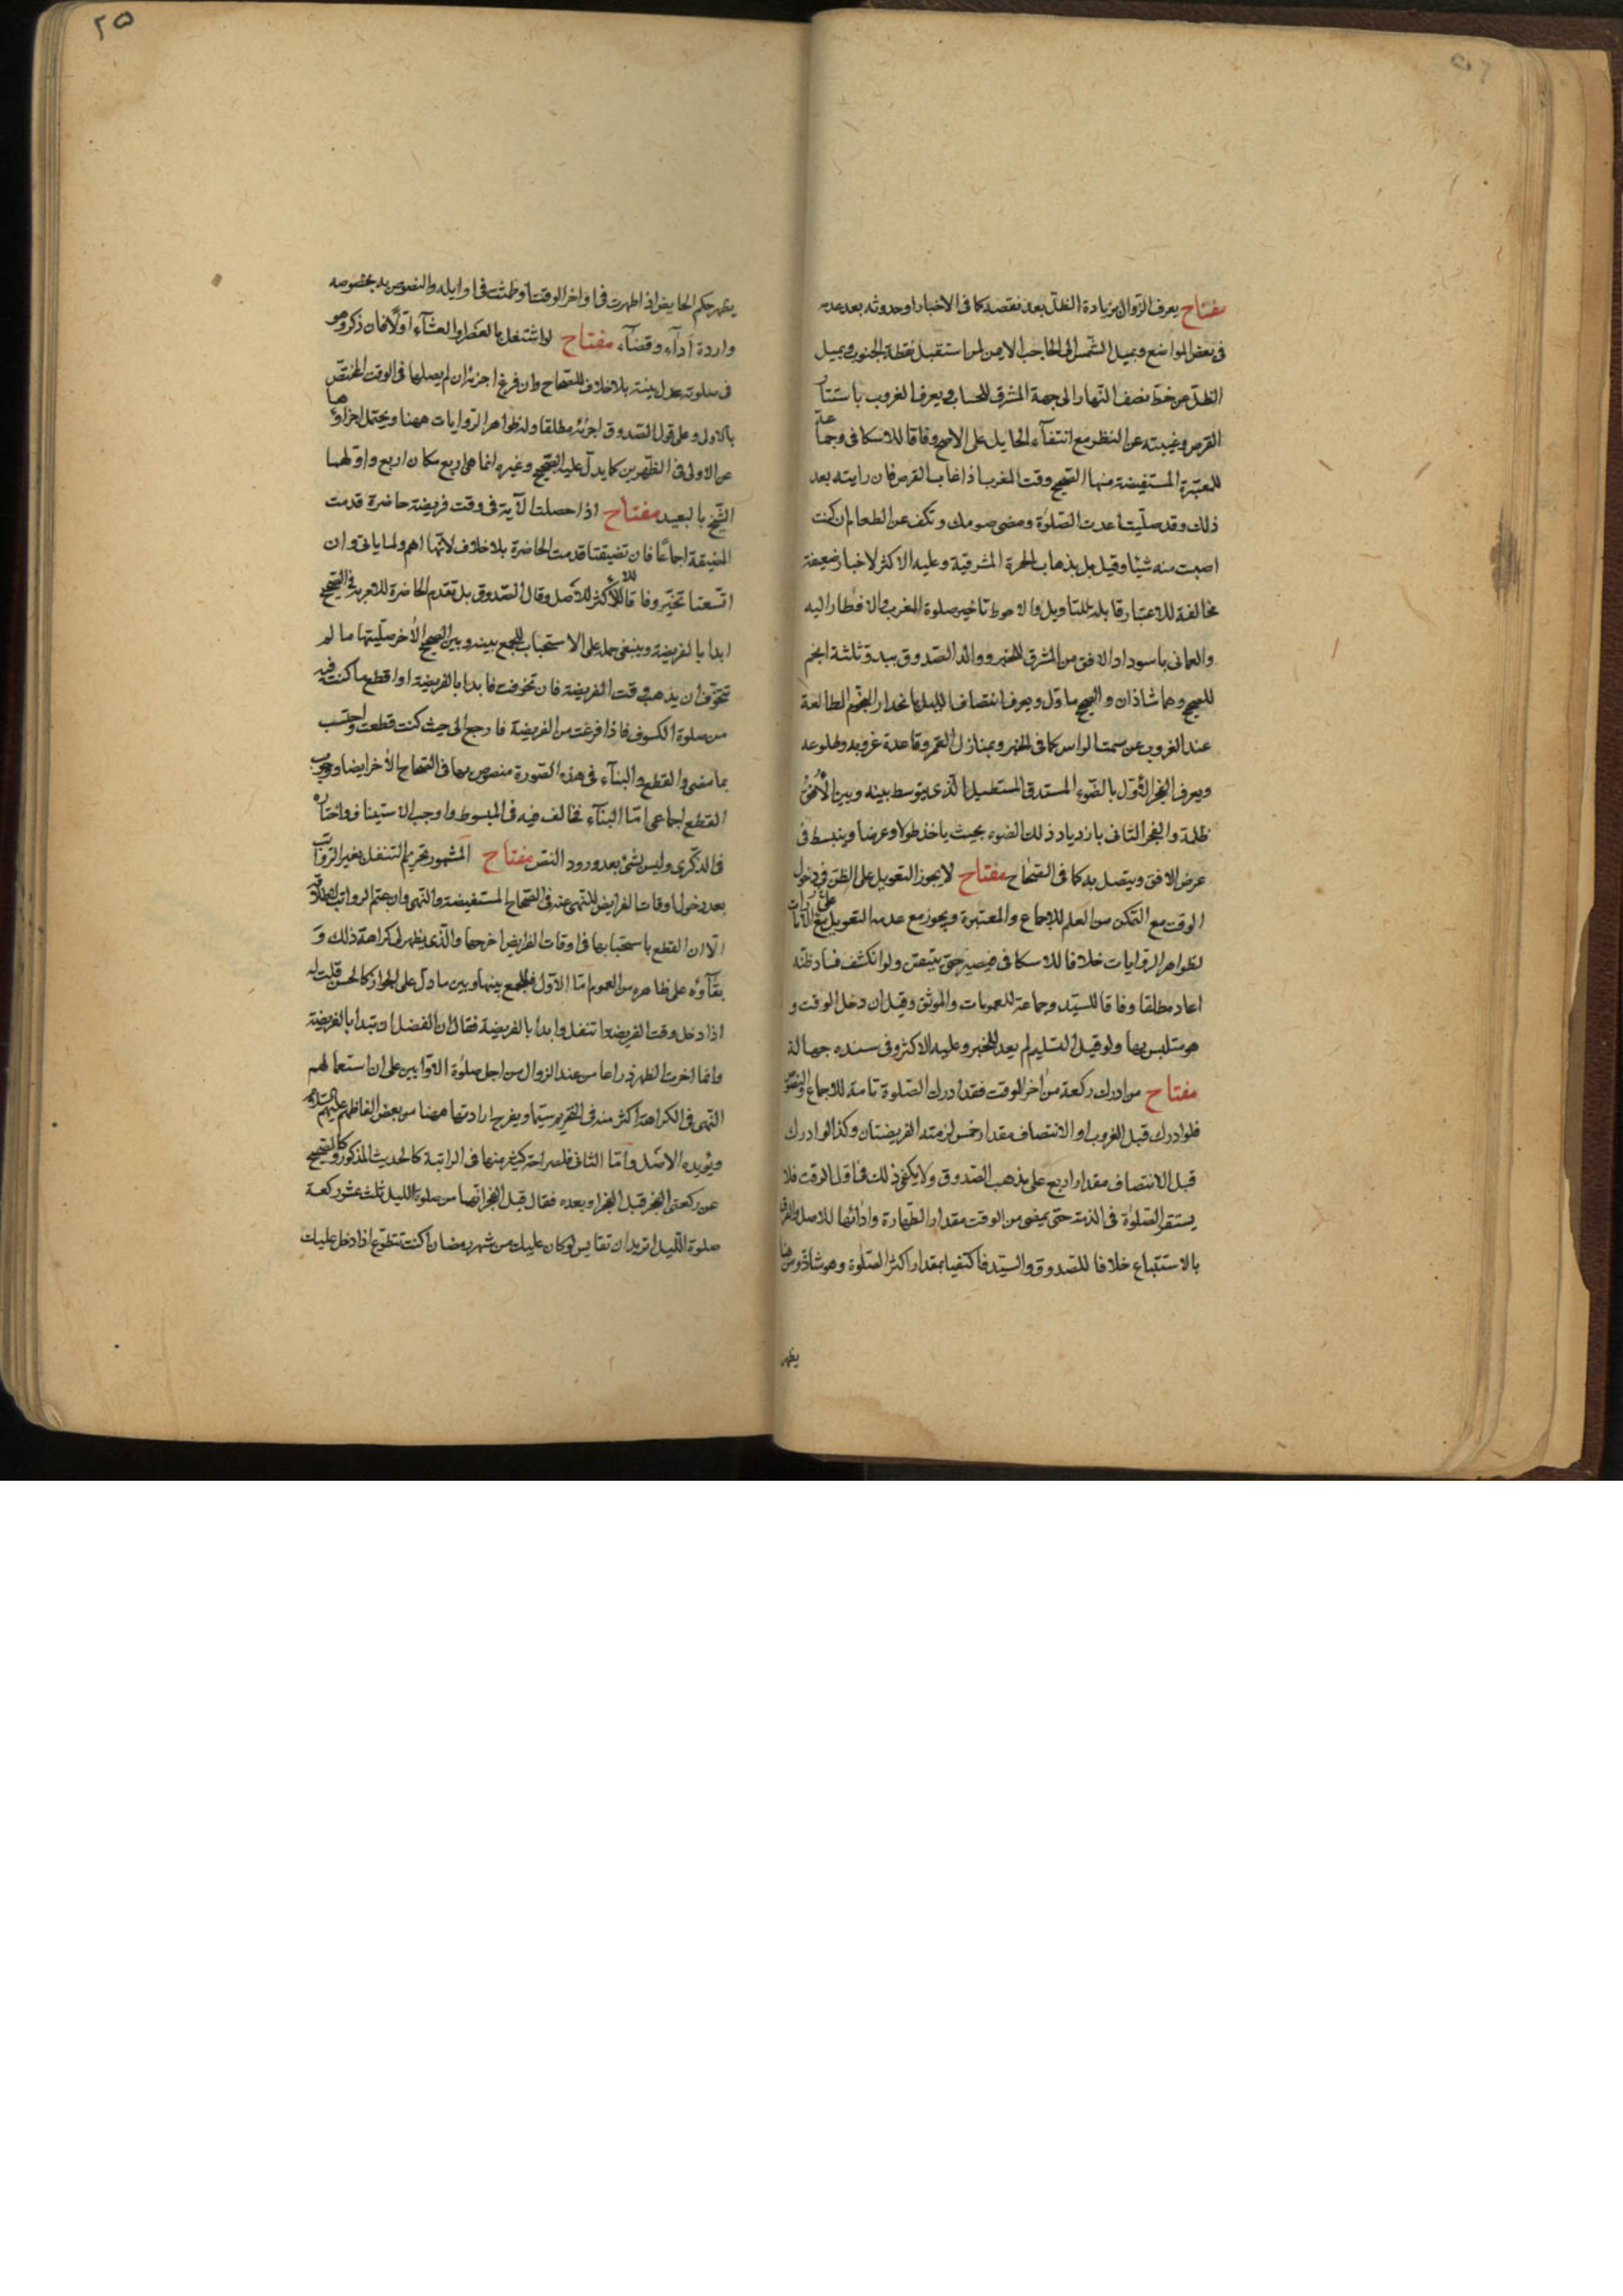 مفتاح يعرف الزوال بزيادة الظل بعد نقصه كما فى الاخبار او حدوثه بعد عدمه
فى بعض المواضع وبميل الشمس الى الحاجب الايمن لمن استقبل نقطة الجنوب وبميل
الظل عن خط نصف النهار الى جهة المشرق للحساب ويعرف الغروب باستتار
القرص وغيبته عن النظر مع انتفاء الحايل على الاصح وفاقا للاسكافى وجماعة
للمعتبرة المستفيضة منها الصحيح وقت المغرب اذا غاب القرص فان رايته بعد
ذلك وقد صليت اعدت الصلوة ومضى صومك وتكف عن الطعام ان كنت
اصبت منه شيئا وقيل بل بذهاب الحمرة المشرقية وعليه الاكثر لاخبار ضعيفة
مخالفة للاعتبار قابلة للتاويل والاحوط تاخير صلوة المغرب والافطار اليه
والعمانى باسوداد الافق من المشرق للخبر ووالد الصدوق ببدو ثلثة انجم
للصحيح وهما شاذان والصحيح ماول ويعرف انتصاف الليل بانحدار النجوم الطالعة
عند الغروب عن سمت الراس كما فى الخبر وبمنازل القمر وقاعدة غروبه وطلوعه
ويعرف الفجر الاول بالضوء المستدق المستطيل الذى يتوسط بينه وبين الافق
ظلمة والفجر الثانى بازدياد ذلك الضوء بحيث ياخذ طولا وعرضا وينبسط فى
عرض الافق ويتصل به كما فى الصحاح مفتاح لا يجوز التعويل على الظن فى دخول
الوقت مع التمكن من العلم للاجماع والمعتبرة ويجوز مع عدمه التعويل على الامارات
لظواهر الروايات خلافا للاسكافى فيصبر حتى يتيقن ولو انكشف فساد ظنه
اعاد مطلقا وفاقا للسيد وجماعة للعمومات والموثق وقيل ان دخل الوقت و
هو متلبس بها ولو قبيل التسليم لم يعد للخبر وعليه الاكثر وفى سنده جهالة
مفتاح من ادرك ركعة من اخر الوقت فقد ادرك الصلوة تامة للاجماع والنصوص
فلو ادرك قبل الغروب او الانتصاف مقدار خمس لزمته الفريضتان وكذا لو ادرك
قبل الانتصاف مقدار اربع على مذهب الصدوق ولا يكفى ذلك فى اول الوقت فلا
يستقر الصلوة فى الذمة حتى يمضى من الوقت مقدار الطهارة وادائها للاصل والفرق
بالاستتباع خلافا للصدوق والسيد فاكتفيا بمقدار اكثر الصلوة وهو شاذ ومن هنا
يظهر
٢٥
يظهر حكم الحايض اذا طهرت فى اواخر الوقت او طمثت فى اوايله والنصوص به بخصوصه
واردة اداء وقضاء مفتاح لو اشتغل بالعصر او العشاء اولا فان ذكر وهو
فى صلوته عدل بنيته بلا خلاف للصحاح وان فرغ اجزئه ان لم يصلها فى الوقت المختص
بالاول وعلى قول الصدوق اجزئه مطلقا ولظواهر الروايات ههنا ويحتمل اجزاؤها
عن الاولى فى الظهرين كما يدل عليه الصحيح وغيره انما هى اربع مكان اربع واولهما
الشيخ بالبعيد مفتاح اذا حصلت الاية فى وقت فريضة حاضرة قدمت
المضيقة اجماعا فان تضيقتا قدمت الحاضرة بلا خلاف لانها اهم ولما ياتى وان
اتسعتا تخير وفاقا للاكثر للاصل وقال الصدوق بل تقدم الحاضرة للامر به فى الصحيح
ابدا بالفريضة وينبغى حمله على الاستحباب للجمع بينه وبين الصحيح الاخر صليتها ما لم
تتخوف ان يذهب وقت الفريضة فان تخوفت فابدا بالفريضة واقطع ما كنت فيه
من صلوة الكسوف فاذا فرغت من الفريضة فارجع الى حيث كنت قطعت واحتسب
بما مضى والقطع والبناء فى هذه الصورة منصوص بهما فى الصحاح الاخر ايضا ووجوب
القطع اجماعى اما البناء فخالف فيه فى المبسوط واوجب الاستيناف واختاره
فى الذكرى وليس بشئ بعد ورود النص مفتاح المشهور تحريم التنفل بغير الرواتب
بعد دخول اوقات الفرايض للنهى عنه فى الصحاح المستفيضة والنهى وان عم الرواتب باطلاقه
الا ان القطع باستحبابها فى اوقات الفرايض اخرجها والذى يظهر لى كراهة ذلك و
بقاؤه على ظاهره من العموم اما الاول فللجمع بينها وبين ما دل على الجواز كالحسن قلت له
اذا دخل وقت الفريضة اتنفل او ابدا بالفريضة فقال ان الفضل ان تبدا بالفريضة
وانما اخرت الظهر ذراعا من عند الزوال من اجل صلوة الاوابين على ان استعمالهم
النهى فى الكراهة اكثر منه فى التحريم سيما ويفرح ارادتها ههنا من بعض الفاظهم عليهم السلام
ويؤيده الاصل واما الثانى فلصراحة كثير منها فى الراتبة كالحديث المذكور وكالصحيح
عن ركعتى الفجر قبل الفجر او بعده فقال قبل الفجر انهما من صلوة الليل ثلث عشر ركعة
صلوة الليل اتريد ان تقايس لو كان عليك من شهر رمضان اكنت تتطوع اذا دخل عليك